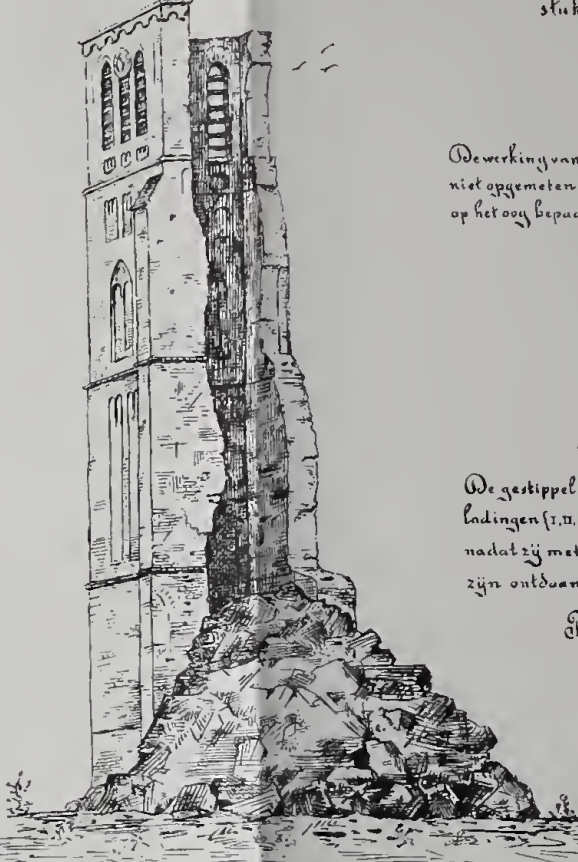 stuk
Bewerking van
niet opgemeten
op het oog bepaa
De gestippel
ladingen (I, II,
nadat zij met
zijn ontdaan